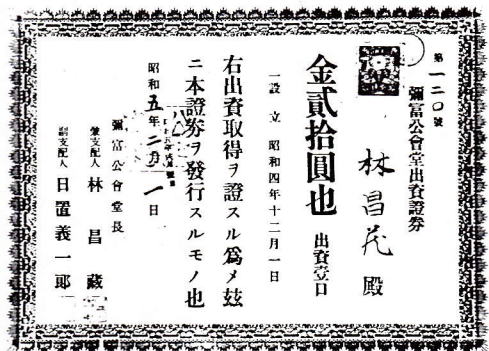 第一二〇號
彌富公會堂出資證券
林昌茂殿
金貳拾圓也 出資壹口
一設立 昭和四年十二月一日
右出資取得ヲ證スル爲メ玆
ニ本證券ヲ發行スルモノ也
昭和五年二月一日
彌富公會堂長
兼支配人 林昌藏
副支配人 日置義一郎